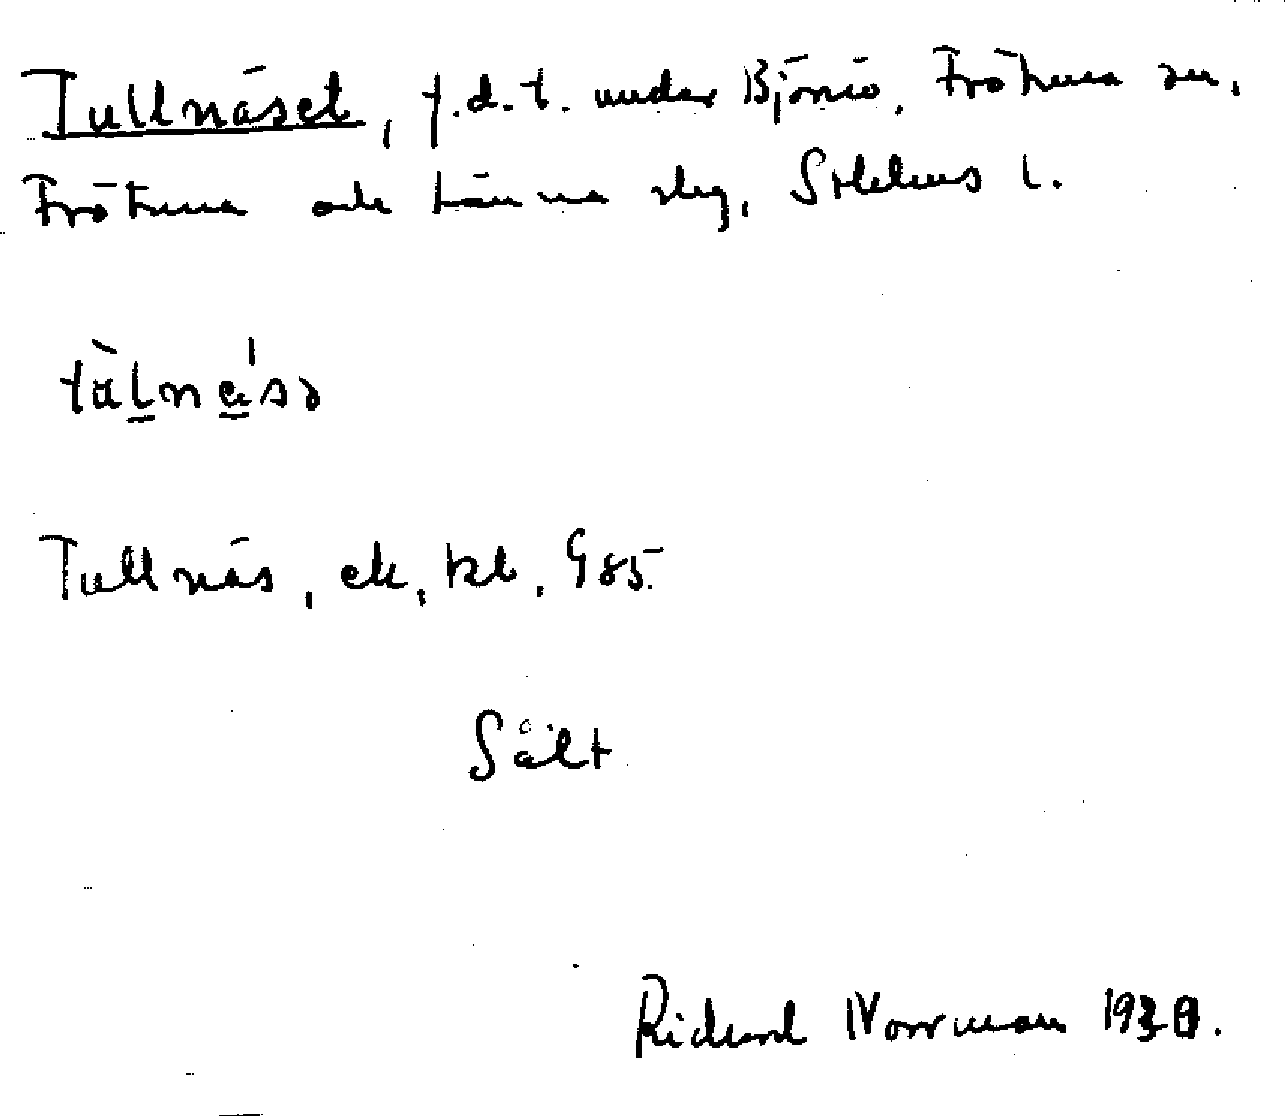 Tullnäset, f.d.t. under Björnö, Frötuna sn,
Frötuna och Länna slg, Sthlms l.
tùlnɛ́sə
Tullnäs, ek, kb, G 85.
Sålt
Richard Norrman 1938.